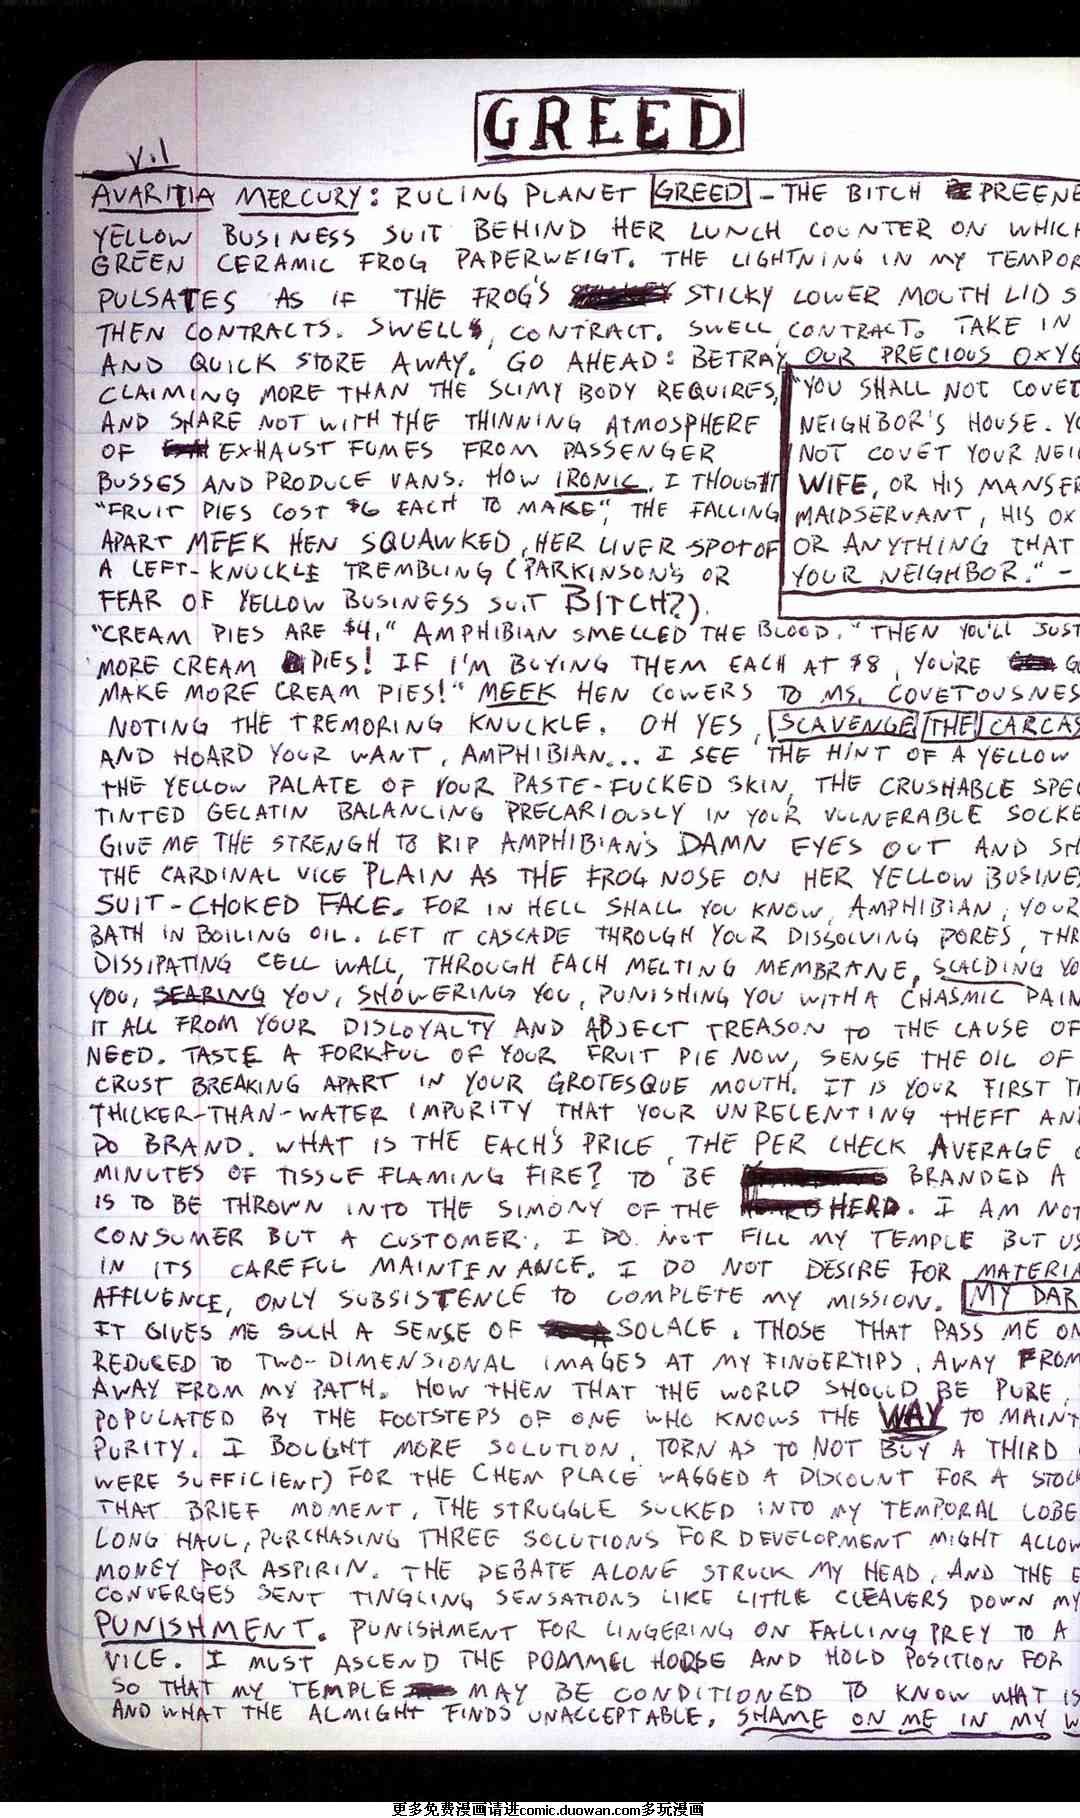 GREED
V.1
AVARITIA MERCURY: RULING PLANET GREED - THE BITCH PREENE
YELLOW BUSINESS SUIT BEHIND HER LUNCH COUNTER ON WHICH
GREEN CERAMIC FROG PAPERWEIGT. THE LIGHTNING IN MY TEMPOR
PULSATES AS IF THE FROG'S STICKY LOWER MOUTH LID S
THEN CONTRACTS. SWELLS, CONTRACT. SWELL, CONTRACT. TAKE IN
AND QUICK STORE AWAY. GO AHEAD: BETRAY OUR PRECIOUS OXYG
CLAIMING MORE THAN THE SLIMY BODY REQUIRES,
AND SHARE NOT WITH THE THINNING ATMOSPHERE
OF EXHAUST FUMES FROM PASSENGER
BUSSES AND PRODUCE VANS. HOW IRONIC, I THOUGHT
"FRUIT PIES COST $6 EACH TO MAKE", THE FALLING
APART MEEK HEN SQUAWKED, HER LIVER-SPOT OF
A LEFT-KNUCKLE TREMBLING (PARKINSON'S OR
FEAR OF YELLOW BUSINESS SUIT BITCH?).
"YOU SHALL NOT COVET
NEIGHBOR'S HOUSE. YO
NOT COVET YOUR NEIG
WIFE, OR HIS MANSER
MAIDSERVANT, HIS OX
OR ANYTHING THAT
YOUR NEIGHBOR." -
"CREAM PIES ARE $4," AMPHIBIAN SMELLED THE BLOOD. "THEN YOU'LL JUST
MORE CREAM PIES! IF I'M BUYING THEM EACH AT $8, YOU'RE G
MAKE MORE CREAM PIES!" MEEK HEN COWERS TO MS. COVETOUSNES
NOTING THE TREMORING KNUCKLE. OH YES, SCAVENGE THE CARCAS
AND HOARD YOUR WANT, AMPHIBIAN... I SEE THE HINT OF A YELLOW
THE YELLOW PALATE OF YOUR PASTE-FUCKED SKIN, THE CRUSHABLE SPEC
TINTED GELATIN BALANCING PRECARIOUSLY IN YOUR VULNERABLE SOCKE
GIVE ME THE STRENGH TO RIP AMPHIBIAN'S DAMN EYES OUT AND SH
THE CARDINAL VICE PLAIN AS THE FROG NOSE ON HER YELLOW BUSINE
SUIT-CHOKED FACE. FOR IN HELL SHALL YOU KNOW, AMPHIBIAN, YOUR
BATH IN BOILING OIL. LET IT CASCADE THROUGH YOUR DISSOLVING PORES, THR
DISSIPATING CELL WALL, THROUGH EACH MELTING MEMBRANE, SCALDING YO
YOU, SEARING YOU, SHOWERING YOU, PUNISHING YOU WITH A CHASMIC PAIN
IT ALL FROM YOUR DISLOYALTY AND ABJECT TREASON TO THE CAUSE OF
NEED. TASTE A FORKFUL OF YOUR FRUIT PIE NOW, SENSE THE OIL OF
CRUST BREAKING APART IN YOUR GROTESQUE MOUTH. IT IS YOUR FIRST T
THICKER-THAN-WATER IMPURITY THAT YOUR UNRELENTING THEFT AND
DO BRAND. WHAT IS THE EACH'S PRICE, THE PER CHECK AVERAGE
MINUTES OF TISSUE FLAMING FIRE? TO BE BRANDED A
IS TO BE THROWN INTO THE SIMONY OF THE HERD. I AM NOT
CONSUMER BUT A CUSTOMER. I DO NOT FILL MY TEMPLE BUT US
IN ITS CAREFUL MAINTENANCE. I DO NOT DESIRE FOR MATERIA
AFFLUENCE, ONLY SUBSISTENCE TO COMPLETE MY MISSION. MY DAR
IT GIVES ME SUCH A SENSE OF SOLACE. THOSE THAT PASS ME ON
REDUCED TO TWO-DIMENSIONAL IMAGES AT MY FINGERTIPS, AWAY FROM
AWAY FROM MY PATH. HOW THEN THAT THE WORLD SHOULD BE PURE,
POPULATED BY THE FOOTSTEPS OF ONE WHO KNOWS THE WAY TO MAINT
PURITY. I BOUGHT MORE SOLUTION, TORN AS TO NOT BUY A THIRD
WERE SUFFICIENT) FOR THE CHEM PLACE WAGGED A DISCOUNT FOR A STOC
THAT BRIEF MOMENT, THE STRUGGLE SUCKED INTO MY TEMPORAL LOBE
LONG HAUL, PURCHASING THREE SOLUTIONS FOR DEVELOPMENT MIGHT ALLOW
MONEY FOR ASPIRIN. THE DEBATE ALONE STRUCK MY HEAD, AND THE E
CONVERGES SENT TINGLING SENSATIONS LIKE LITTLE CLEAVERS DOWN MY
PUNISHMENT. PUNISHMENT FOR LINGERING ON FALLING PREY TO A
VICE. I MUST ASCEND THE POMMEL HORSE AND HOLD POSITION FOR
SO THAT MY TEMPLE MAY BE CONDITIONED TO KNOW WHAT IS
AND WHAT THE ALMIGHT FINDS UNACCEPTABLE. SHAME ON ME IN MY W
更多免费漫画请进comic.duowan.com多玩漫画